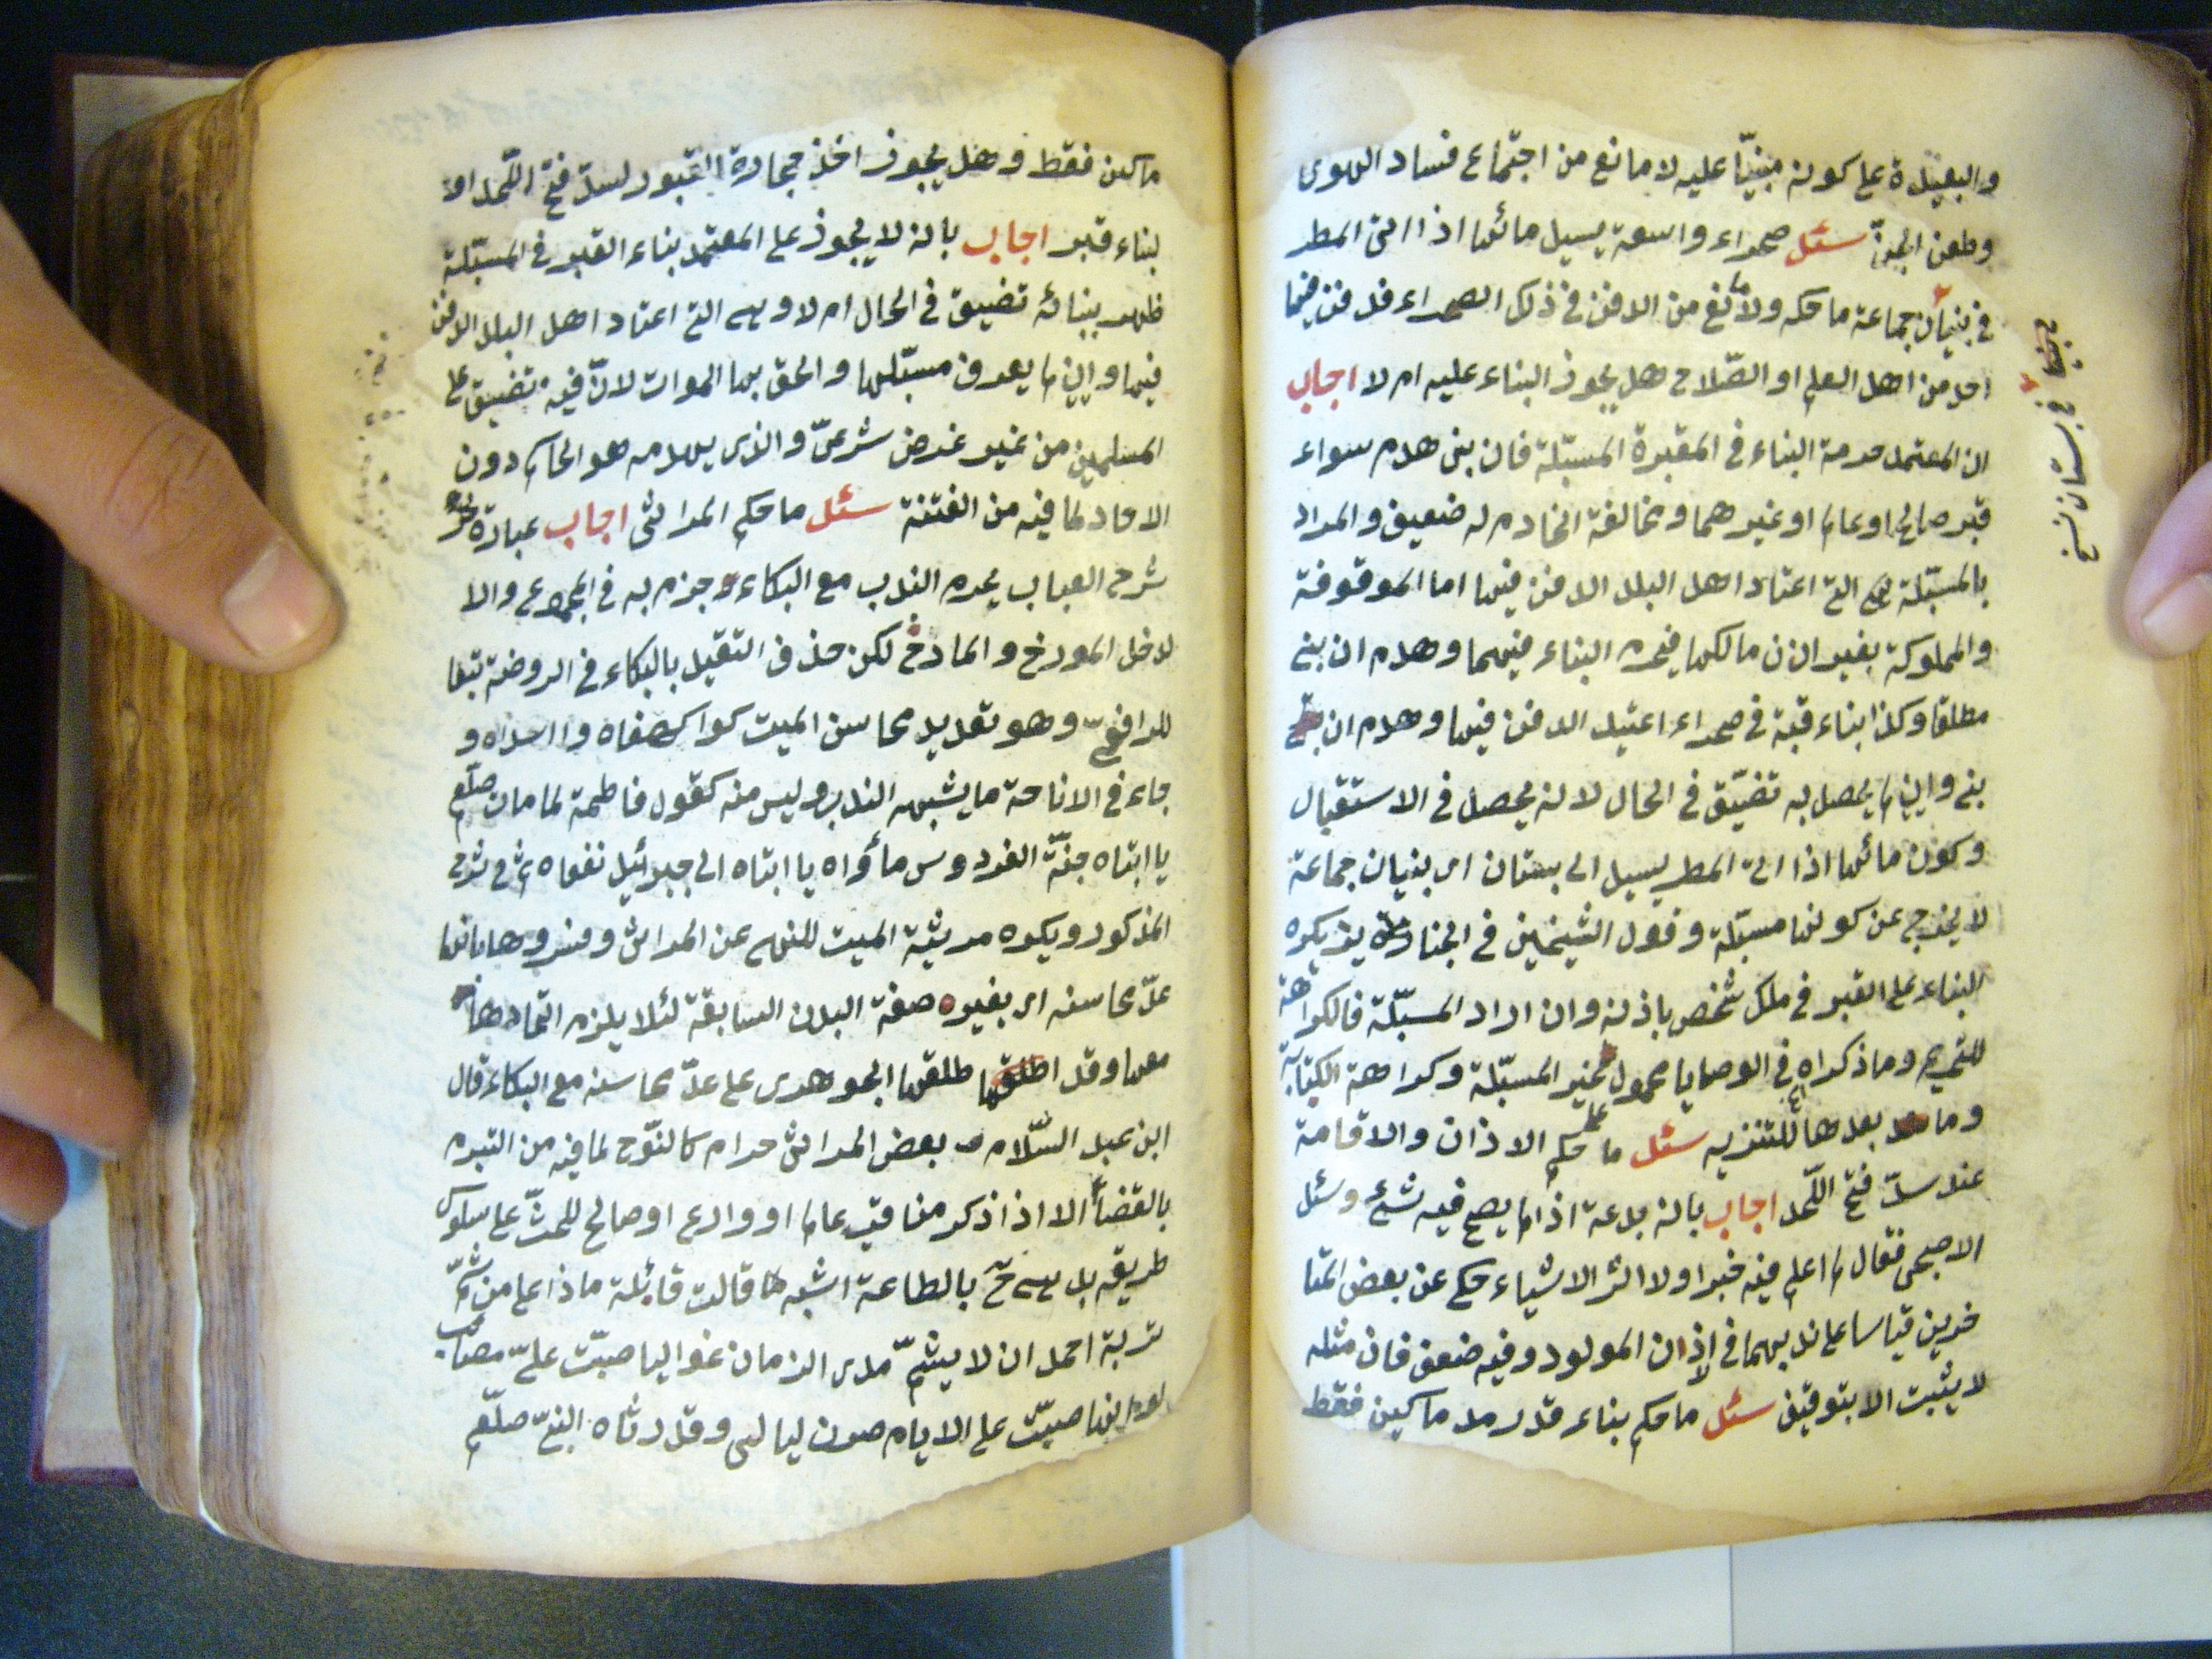 والبعيدة على كونه مبنيّا عليه لا مانع من اجتماع فساد الهوى
وطعن الجنّ سئل صحراء واسعة يسيل مائها اذا اتى المطر
في بنيان جماعة ما حكمه ولا مانع من الدفن في ذلك الصحراء فدفن فيها
احد من اهل العلم او الصّلاح هل يجوز البناء عليه ام لا اجاب
ان المعتمد حرمة البناء في المقبرة المسبّلة فان بنى هدم سواء
قبر صالح او عالم او غيرهما ومخالفة الخادم له ضعيف والمراد
بالمسبّلة هي التي اعتاد اهل البلد الدفن فيها اما الموقوفة
والمملوكة بغير اذن مالكها فيحرم البناء فيهما وهدم ان بنى
مطلقا وكذا بناء قبة في صحراء اعتيد الدفن فيها وهدم ان
بنى وان لم يحصل به تضيّق في الحال لانه يحصل في الاستقبال
وكون مائها اذا اتى المطر يسيل الى بستان اى بنيان جماعة
لا يخرج عن كونها مسبّلة وقول الشيخين في الجنائز يكره
البناء على القبر في ملك شخص باذنه وان اراد المسبّلة فالكراهة
للتحريم وما ذكراه في الوصايا محمول لغير المسبّلة وكراهة الكتابة
وما بعدها للتنزيه سئل ما حكم الاذان والاقامة
عند سدّ فتح اللّحد اجاب بانه بدعة اذ لم يصح فيه شئ وسئل
الاصبحى فقال لم اعلم فيه خبرا ولا اثر الاشياء حكى عن بعض المتا
خرين قياسا على ندبهما في اذان المولود وفيه ضعف فان مثله
لا يثبت الا بتوقيف سئل ما حكم بناء قدر مدماكين فقط
في بستان نسخ
ماكين فقط وهل يجوز اخذ حجارة القبور لسدّ فتح اللّحد او
لبناء قبر اجاب بانه لا يجوز على المعتمد بناء القبر في المسبّلة
ظهر ببنائه تضييق في الحال ام لا وهى التي اعتاد اهل البلد الدفن
فيها وان لم يعرف مسبّلها والحق بها الموات لانّ فيه تضييق على
المسلمين من غير غرض شرعىّ والذى يهدمه هو الحاكم دون
الاحاد لما فيه من الفتنة سئل ما حكم المراثى اجاب عبارة
شرح العباب يحرم الندب مع البكاء وجزم به في المجموع والا
لدخل المورخ والمادح لكن حذف التقييد بالبكاء في الروضة تبعا
للرافعىّ وهو تعديد محاسن الميت كواكهفاه وااسداه و
جاء في الاناحة ما يشبه الندب وليس منه كقول فاطمة لما مات صلّعم
يا ابتاه جنّة الفردوس مأواه يا ابتاه الى جبرائيل ننعاه وفي شرح
المذكور ويكره مرثية الميت للنهى عن المراثى وفسروها بانها
عدّ محاسنه اى بغير صفة البدن السابقة لئلا يلزم اتحادها
معها وقد اطلقها الجوهرى على عدّ محاسنه مع البكاء قال
ابن عبد السّلام بعض المراثى حرام كالنّوح لما فيه من التبرم
بالقضاء الا اذا ذكر مناقب عالم او وارع او صالح للحثّ على سلوك
طريقه بل هى ح بالطاعة اشبه كما قالت قائلة ماذا على من شمّ
تربة احمد ان لا يشمّ مدى الزمان غواليا صبّت علىّ مصائب
لو انها صبّت على الايام صرن لياليى وقد رثاه النبىّ صلّعم